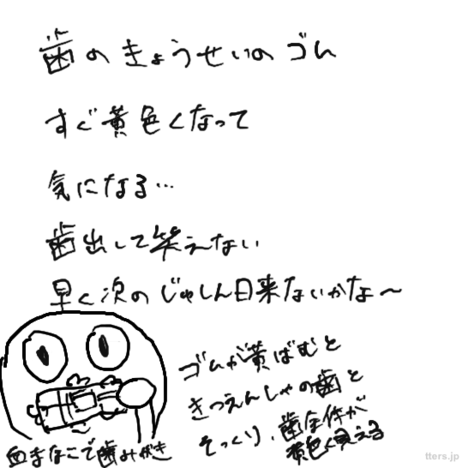 歯のきょうせいのゴム
すぐ黄色くなって
気になる…
歯出して笑えない
早く次のじゅしん日来ないかな〜
ゴムが黄ばむと
きつえんしゃの歯と
そっくり、歯全体が
黄色く見える
血まなこで歯みがき
tters.jp